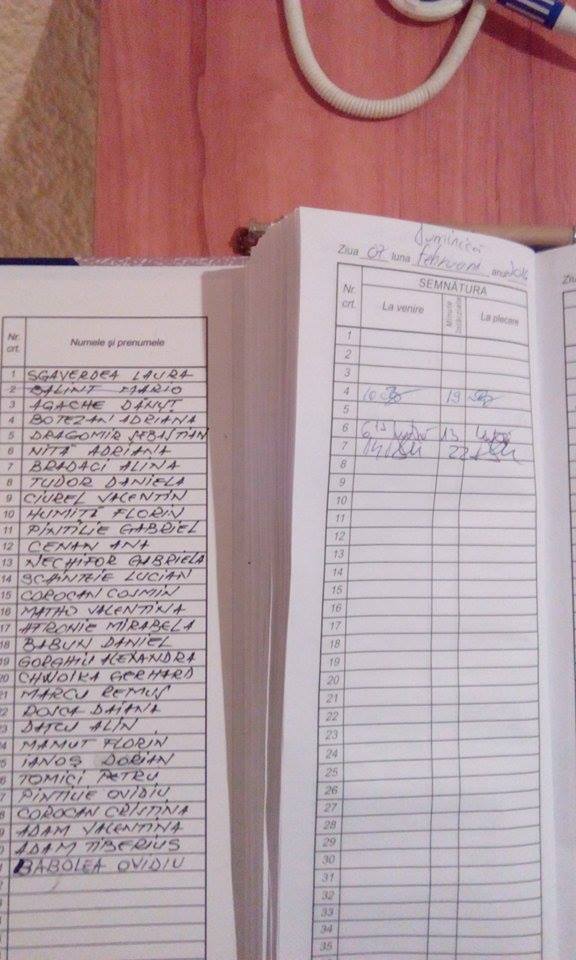 Nr. crt.
Numele și prenumele
1 SGAVERDEA LAURA
2 BALINT MARIO
3 AGACHE DĂNUȚ
4 BOTEZAN ADRIANA
5 DRAGOMIR SEBASTIAN
6 NIȚĂ ADRIANA
7 BRADACI ALINA
8 TUDOR DANIELA
9 CIUREL VALENTIN
10 HUMIȚĂ FLORIN
11 PINTILIE GABRIEL
12 CENAN ANA
13 NECHIFOR GABRIELA
14 SCÂNTEIE LUCIAN
15 COROCAN COSMIN
16 VALENTINA
17 MIRABELA
18 BABUN DANIEL
19 GORGHIU ALEXANDRA
20 GERHARD
21 MARCU REMUS
22 DAIANA
23 DATCU ALIN
MAMUT FLORIN
IANOȘ DORIAN
TOMICI PETRU
PINTILIE OVIDIU
COROCAN CRISTINA
ADAM VALENTINA
ADAM TIBERIUS
BABOLEA OVIDIU
Duminică
Ziua 07 luna februarie anul
SEMNĂTURA
Nr. crt.
La venire
Minute întârziate
La plecare
1
2
3
4 10 19
5
6 6 13
7 14 22
8
9
10
11
12
13
14
15
16
17
18
19
20
21
22
23
24
25
26
27
28
29
30
31
32
33
34
35
Ziua